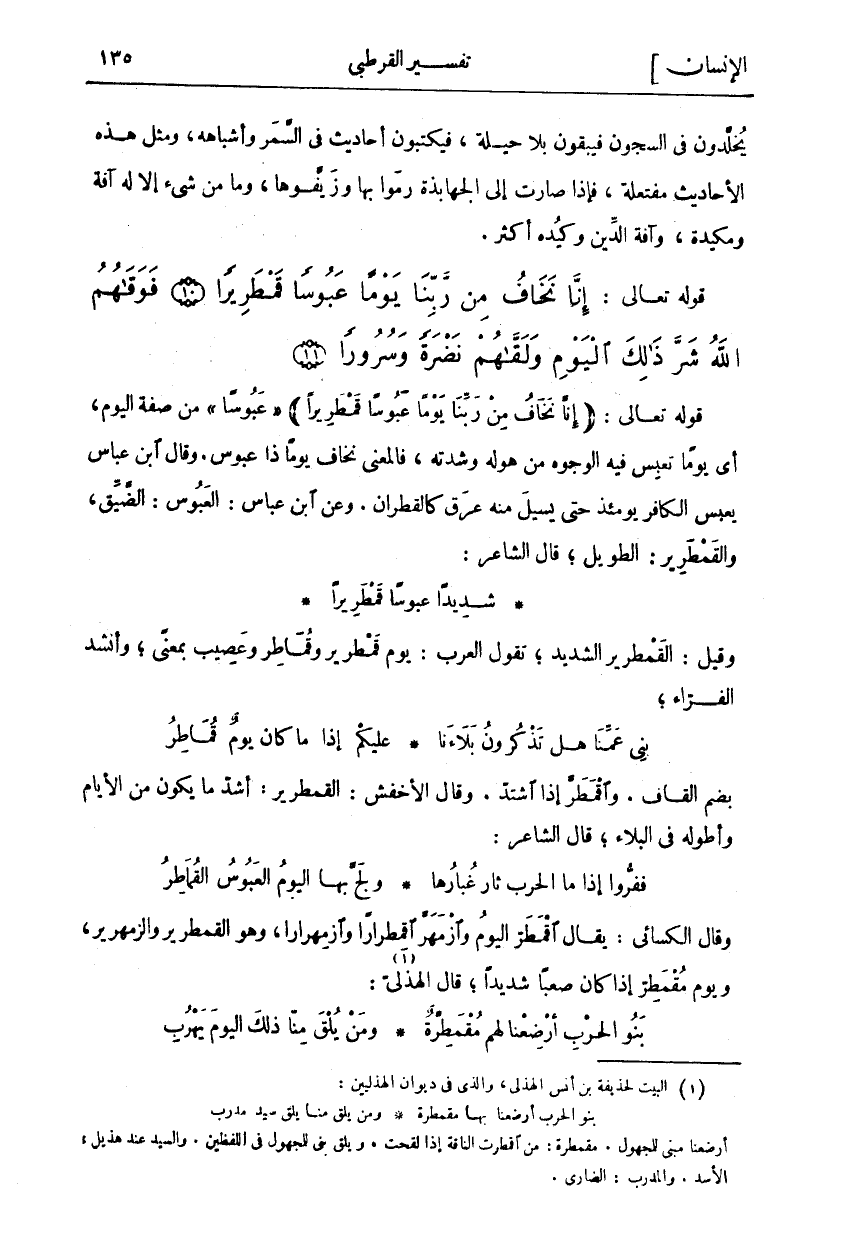 الإنسان ] تفســير القرطبي ١٣٥
يُخَلَّدون فى السجون فيبقون بلا حيـلة ، فيكتبون أحاديث فى السَّمَر وأشباهه، ومثل هـذه
الأحاديث مفتعلة ، فإذا صارت إلى الجهابذة رمَوا بها وزَيَّفـوها ، وما من شىء إلا له آفة
ومكيدة ، وآفة الدِّين وكيْده أكثر .
قوله تعـالى : إِنَّا نَخَافُ مِن رَّبِّنَا يَوْمًا عَبُوسًا قَمْطَرِيرًا ﴿١٠﴾ فَوَقَىٰهُمُ
ٱللَّهُ شَرَّ ذَٰلِكَ ٱلْيَوْمِ وَلَقَّىٰهُمْ نَضْرَةً وَسُرُورًا ﴿١١﴾
قوله تعـالى : ﴿ إِنَّا نَخَافُ مِنْ رَبِّنَا يَوْمًا عَبُوسًا قَمْطَرِيراً ﴾ « عَبُوسًا » من صفة اليوم،
أى يومًا تعبِس فيه الوجوه من هوله وشدته ، فالمعنى نخاف يومًا ذا عبوس. وقال آبن عباس
يعبس الكافر يومئذ حتى يسيلَ منه عرَق كالقطران . وعن آبن عباس : العَبُوس : الضَّيِّق،
والقَمْطَرِير : الطويل ؛ قال الشاعر :
* شـديدًا عبوسًا قَمْطَرِيراً *
وقيل : القَمْطرير الشديد ؛ تقول العرب : يوم قَمْطرير وقُمَـاطِر وعَصِيب بمعنًى ؛ وأنشد
الفــرّاء ؛
بنِي عَمِّنَا هـل تَذْكُرونُ بَلَاءَنَا * عليكمْ إذا ما كان يومٌ قُمَـاطِرُ
بضم القـاف . وٱقْمَطَرَّ إذا ٱشتدّ . وقال الأخفش : القمطرير : أشدّ ما يكون من الأيام
وأطوله فى البلاء ؛ قال الشاعر :
ففِرُّوا إذا ما الحرب ثار غُبارُها * ولَجَّ بهـا اليومُ العَبُوسُ القُماطِرُ
وقال الكسائى : يقـال ٱقْمَطَرّ اليومُ وٱزْمَهَرَّ ٱقمطرارًا وٱزمهرارا، وهو القمطرير والزمهرير،
ويوم مُقْمَطِرّ إذا كان صعبًا شديداً ؛ قال الهذلىّ (١) :
بَنُو الحرْبِ أُرْضِعْنا لهم مُقْمَطِرَّةٌ * ومَنْ يُلْقَ مِنّا ذلكَ اليومَ يَهْرُبِ
(١) البيت لحذيفة بن أنس الهذلى ، والذى فى ديوان الهذليين :
بنو الحرب أرضعنا بهـا مقمطرة * ومن يلق منـا يلق سيد مدرب
أرضعنا مبنى للجهول . مقمطرة : من ٱقمطرت الناقة إذا لقحت . ويلق بنى للجهول فى اللفظين . والسيد عند هذيل :
الأسد . والمدرب : الضارى .